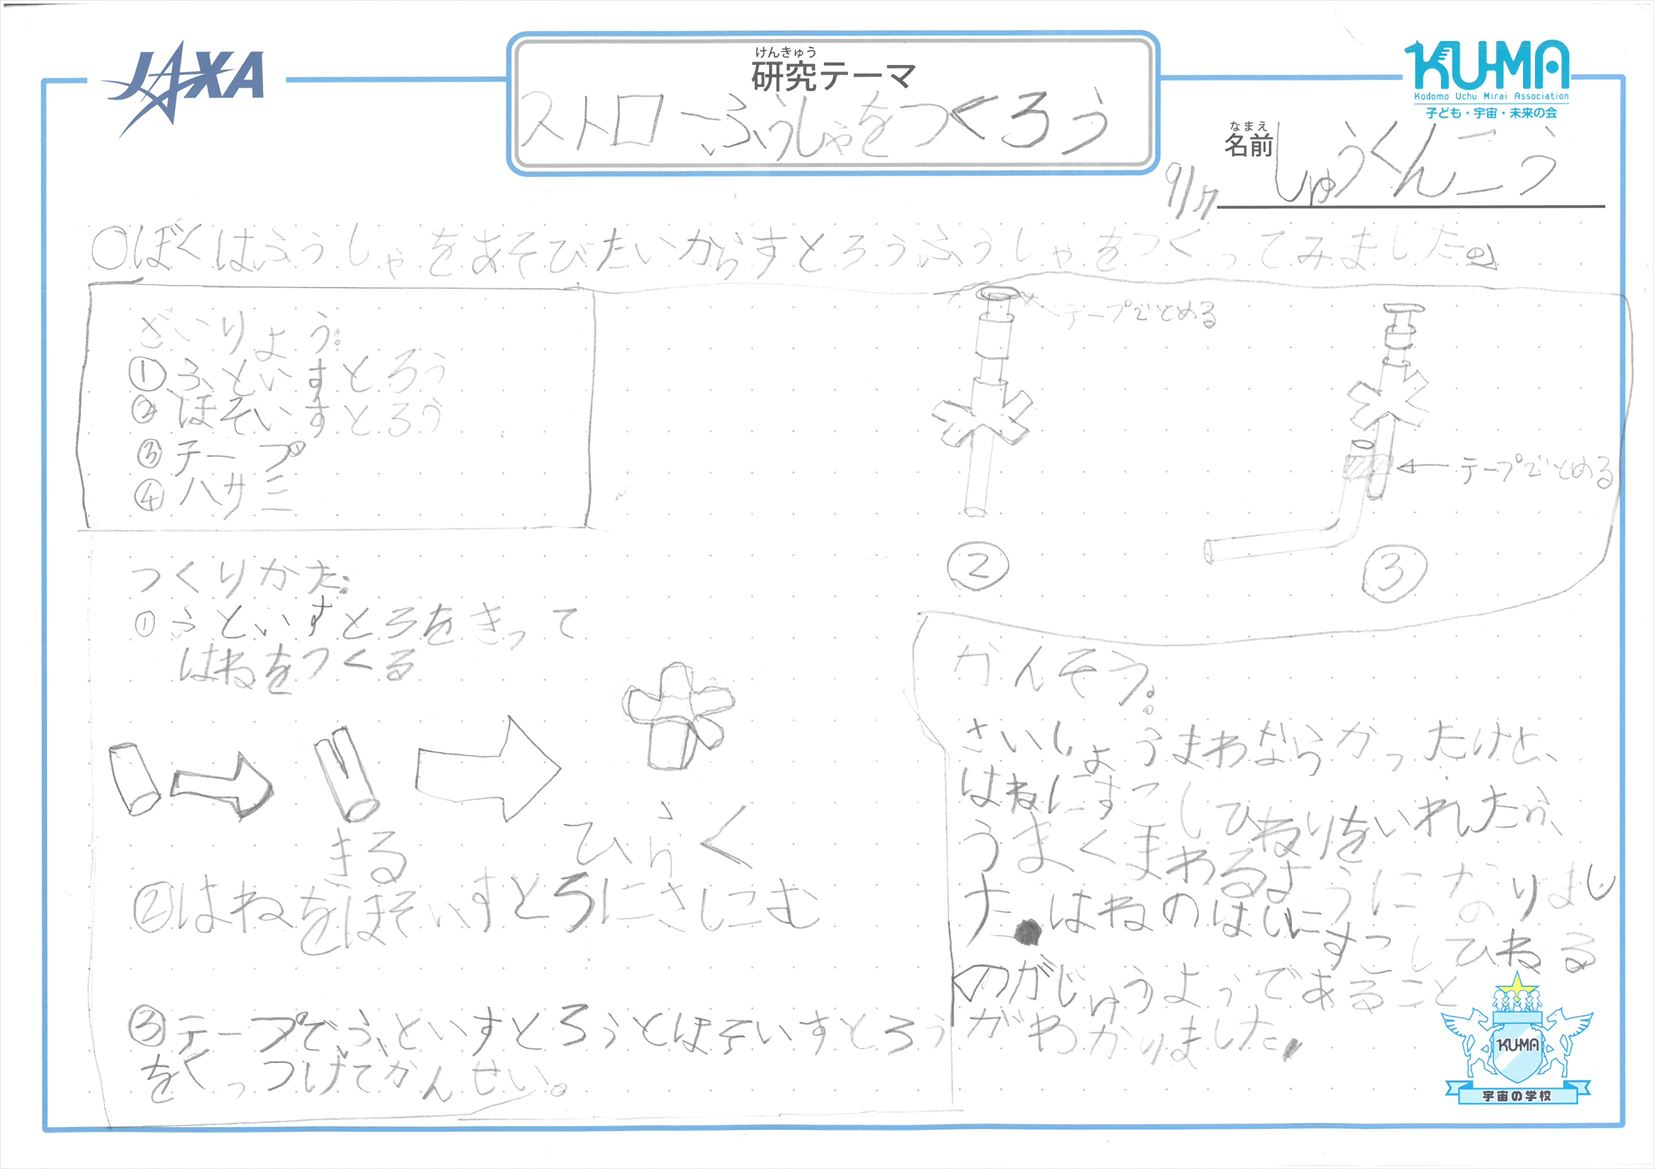 JAXA
けんきゅう
研究テーマ
ストローふうしゃをつくろう
KU-MA
Kodomo Uchu Mirai Association
子ども・宇宙・未来の会
なまえ
名前
しゅうくんこう
9/17
○ぼくはふうしゃをあそびたいからすとろうふうしゃをつくってみました。
ざいりょう:
①ふといすとろう
②ほそいすとろう
③テープ
④ハサミ
テープでとめる
②
テープでとめる
③
つくりかた:
①ふといすとろをきって
はねをつくる
きる
ひらく
②はねをほそいすとろにさしこむ
③テープで、ふといすとろうとほそいすとろう
をくっつげてかんせい。
かんそう:
さいしょうまわならかったけと、
はねにすこしひねりをいれたら、
うまくまわるようになりまし
た。はねのはしにすこしひねる
のがじゅうようであること
がわかりました。
KU-MA
宇宙の学校